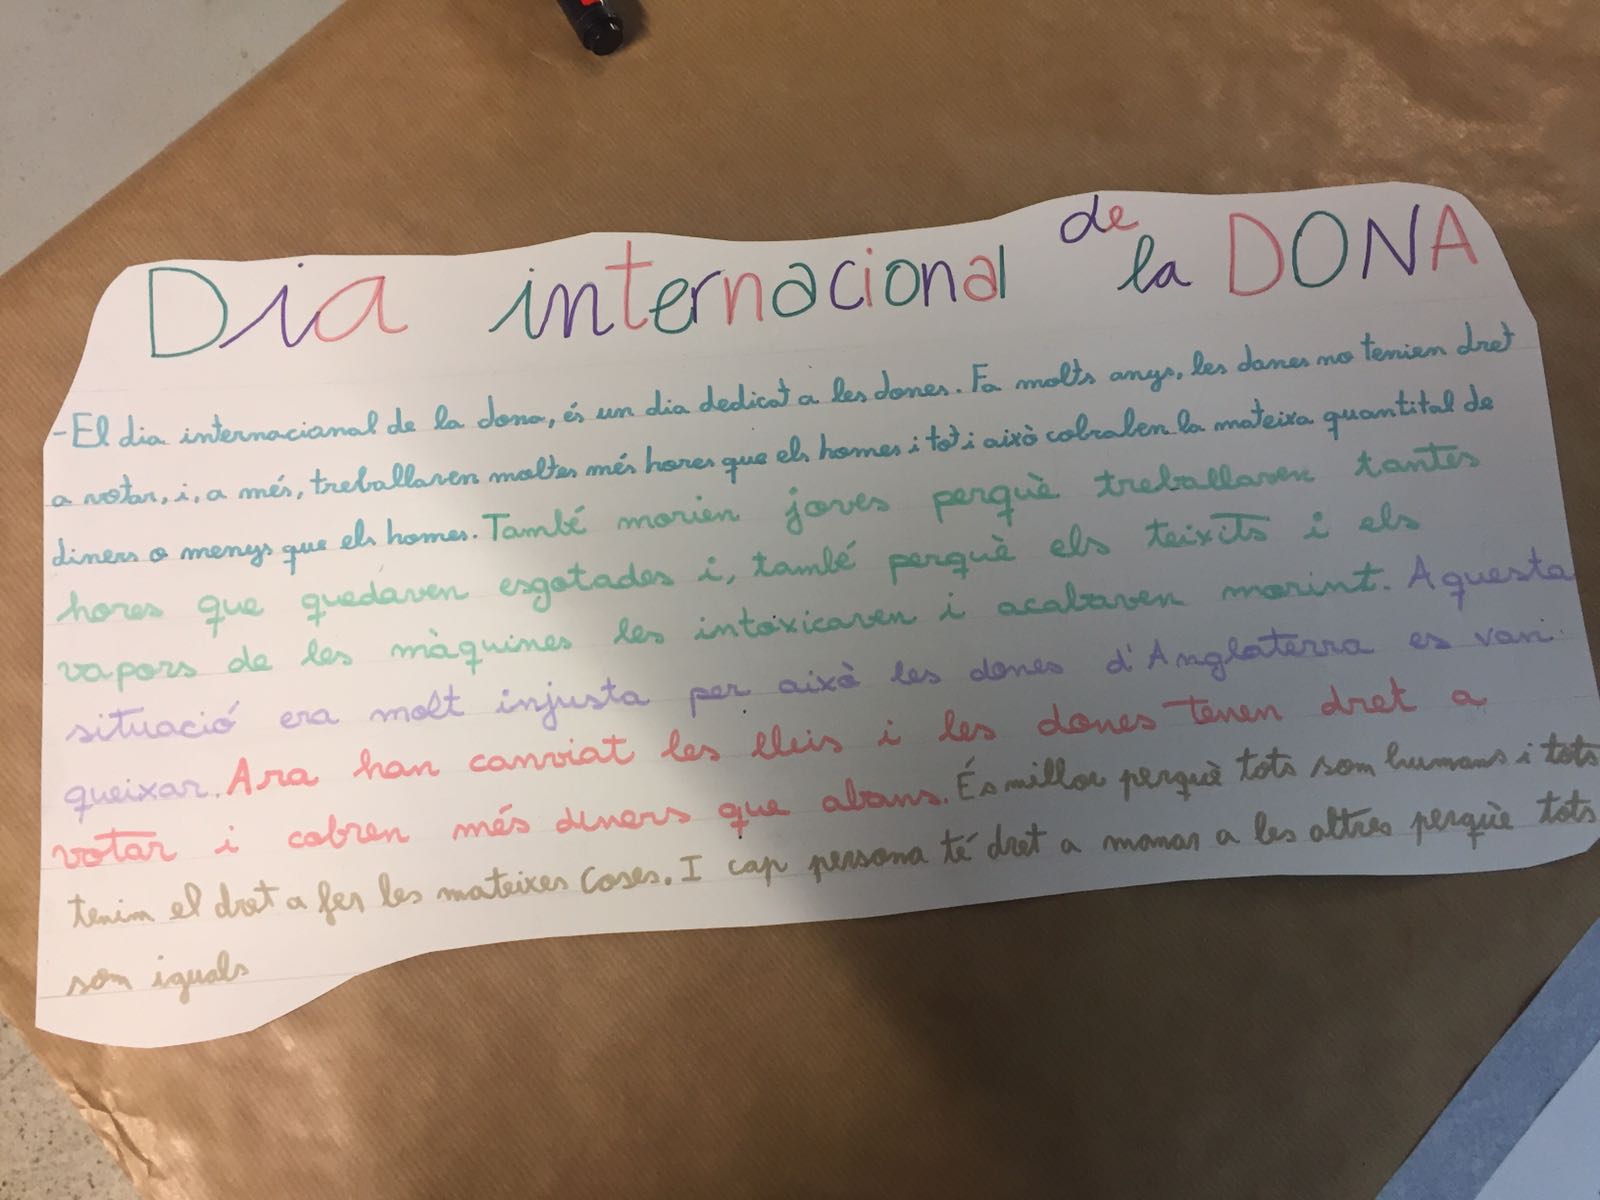 Dia internacional de la DONA
-El dia internacional de la dona, és un dia dedicat a les dones. Fa molts anys, les dones no tenien dret
a votar, i, a més, treballaven moltes més hores que els homes i tot i això cobraben la mateixa quantitat de
diners o menys que els homes. També morien joves perquè treballaven tantes
hores que quedaven esgotades i, també perquè els teixits i els
vapors de les màquines les intoxicaven i acabaven morint. Aquesta
situació era molt injusta per això les dones d'Anglaterra es van
queixar. Ara han canviat les lleis i les dones tenen dret a
votar i cobren més diners que abans. És millor perquè tots som humans i tots
tenim el dret a fer les mateixes coses. I cap persona té dret a manar a les altres perquè tots
som iguals